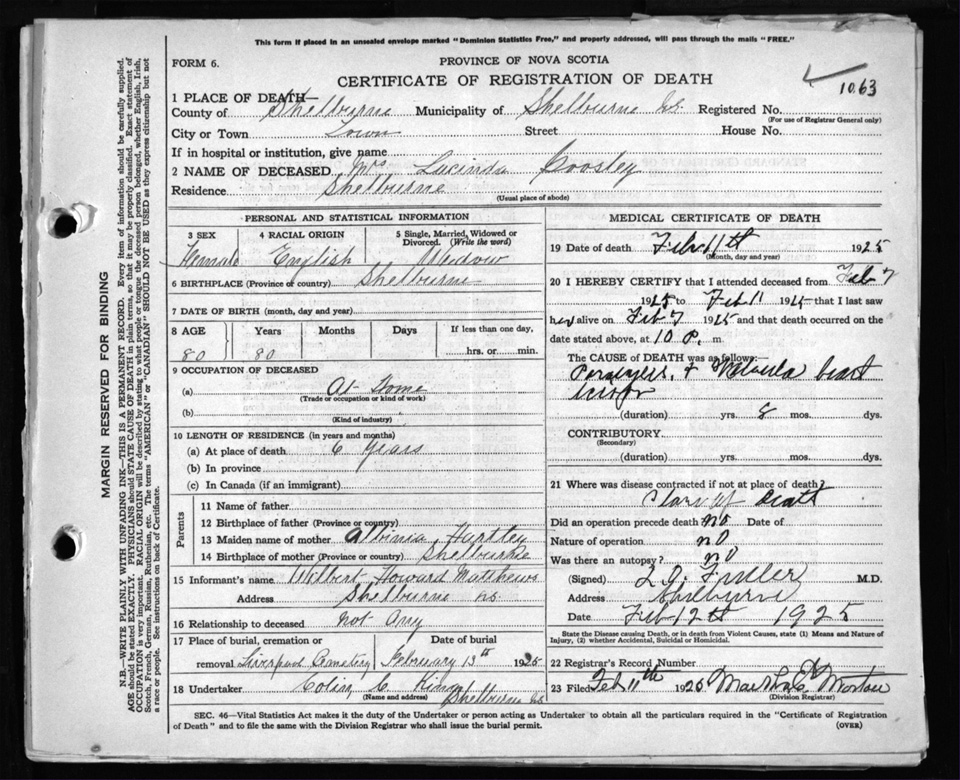 This form if placed in an unsealed envelope marked "Dominion Statistics Free," and properly addressed, will pass through the mails "FREE."
FORM 6.
PROVINCE OF NOVA SCOTIA
CERTIFICATE OF REGISTRATION OF DEATH
1063
1 PLACE OF DEATH—
County of Shelburne Municipality of Shelburne NS. Registered No.
(For use of Registrar General only)
City or Town Town Street House No.
If in hospital or institution, give name
2 NAME OF DECEASED Mrs Lucinda
Residence Shelburne
(Usual place of abode)
PERSONAL AND STATISTICAL INFORMATION
3 SEX Female
4 RACIAL ORIGIN English
5 Single, Married, Widowed or Divorced. (Write the word) Widow
6 BIRTHPLACE (Province or country) Shelburne
7 DATE OF BIRTH (month, day and year)
8 AGE 80 Years 80 Months Days If less than one day, hrs. or min.
9 OCCUPATION OF DECEASED
(a) At Home
(Trade or occupation or kind of work)
(b)
(Kind of industry)
10 LENGTH OF RESIDENCE (in years and months)
(a) At place of death 6 Years
(b) In province
(c) In Canada (if an immigrant)
Parents
11 Name of father
12 Birthplace of father (Province or country)
13 Maiden name of mother Hartley
14 Birthplace of mother (Province or country) Shelburne
15 Informant's name Wilbert Howard Matthews
Address Shelburne NS
16 Relationship to deceased not any
17 Place of burial, cremation or removal Liverpool Cemetery
Date of burial February 13th 1925
18 Undertaker Colin C. King
(Name and address) Shelburne NS
MEDICAL CERTIFICATE OF DEATH
19 Date of death Feb 11th 1925
(Month, day and year)
20 I HEREBY CERTIFY that I attended deceased from Feb 7
1925 to Feb 11 1925 that I last saw
her alive on Feb 7 1925 and that death occurred on the
date stated above, at 10 P. m
The CAUSE OF DEATH was as follows:—
heart
(duration) yrs. 8 mos. dys.
CONTRIBUTORY
(Secondary)
(duration) yrs. mos. dys.
21 Where was disease contracted if not at place of death?
Place of death
Did an operation precede death no Date of
Nature of operation no
Was there an autopsy? no
(Signed) M.D.
Address Shelburne
Date Feb 12th 1925
State the Disease causing Death, or in death from Violent Causes, state (1) Means and Nature of
Injury, (2) whether Accidental, Suicidal or Homicidal.
22 Registrar's Record Number
23 Filed Feb 11th 1925 Morton
(Division Registrar)
SEC. 46—Vital Statistics Act makes it the duty of the Undertaker or person acting as Undertaker to obtain all the particulars required in the "Certificate of Registration
of Death" and to file the same with the Division Registrar who shall issue the burial permit.
(OVER)
MARGIN RESERVED FOR BINDING
N.B.—WRITE PLAINLY WITH UNFADING INK—THIS IS A PERMANENT RECORD. Every item of information should be carefully supplied.
AGE should be stated EXACTLY. PHYSICIANS should STATE CAUSE OF DEATH in plain terms, so that it may be properly classified. Exact statement of
OCCUPATION is very important. RACIAL ORIGIN will be described by stating to what people or tongue the deceased person belonged, whether English, Irish,
Scotch, French, German, Russian, Ruthenian, etc. The terms "AMERICAN" or "CANADIAN" SHOULD NOT BE USED as they express citizenship but not
a race or people. See instructions on back of Certificate.